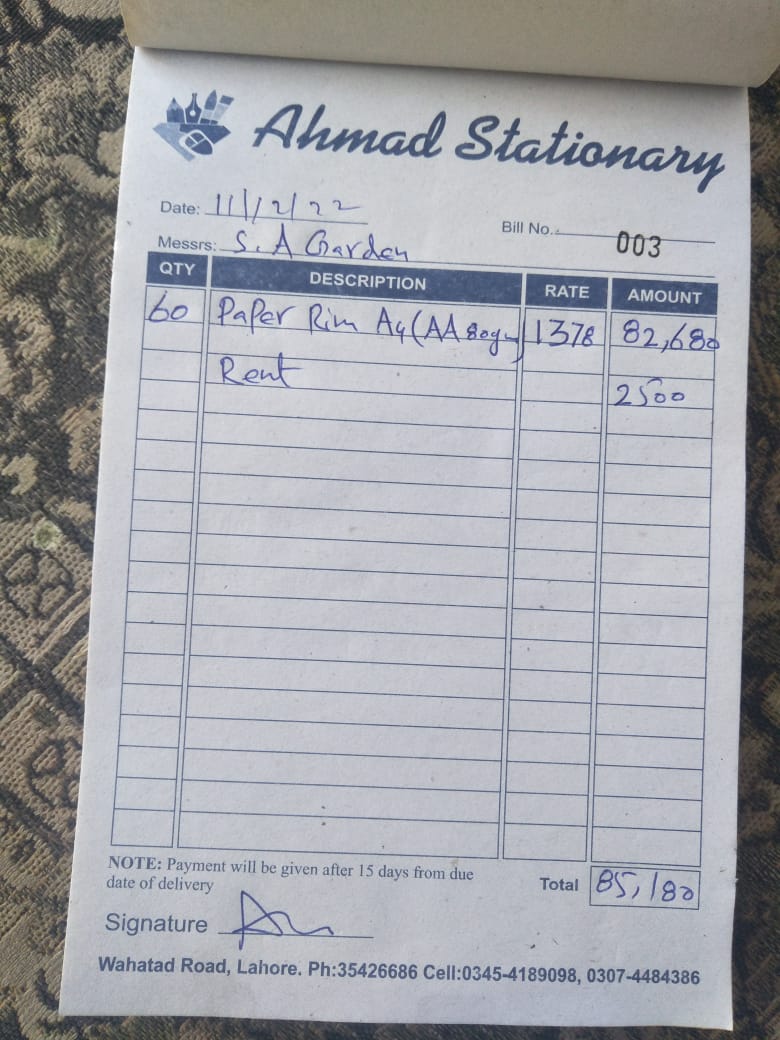 Ahmad Stationary
Date: 11/12/22
Bill No. 003
Messrs: S. A Garden
QTY DESCRIPTION RATE AMOUNT
60 Paper Rim A4 (AA 80gm) 1378 82,680
Rent 2500
NOTE: Payment will be given after 15 days from due
date of delivery
Total 85,180
Signature
Wahatad Road, Lahore. Ph:35426686 Cell:0345-4189098, 0307-4484386